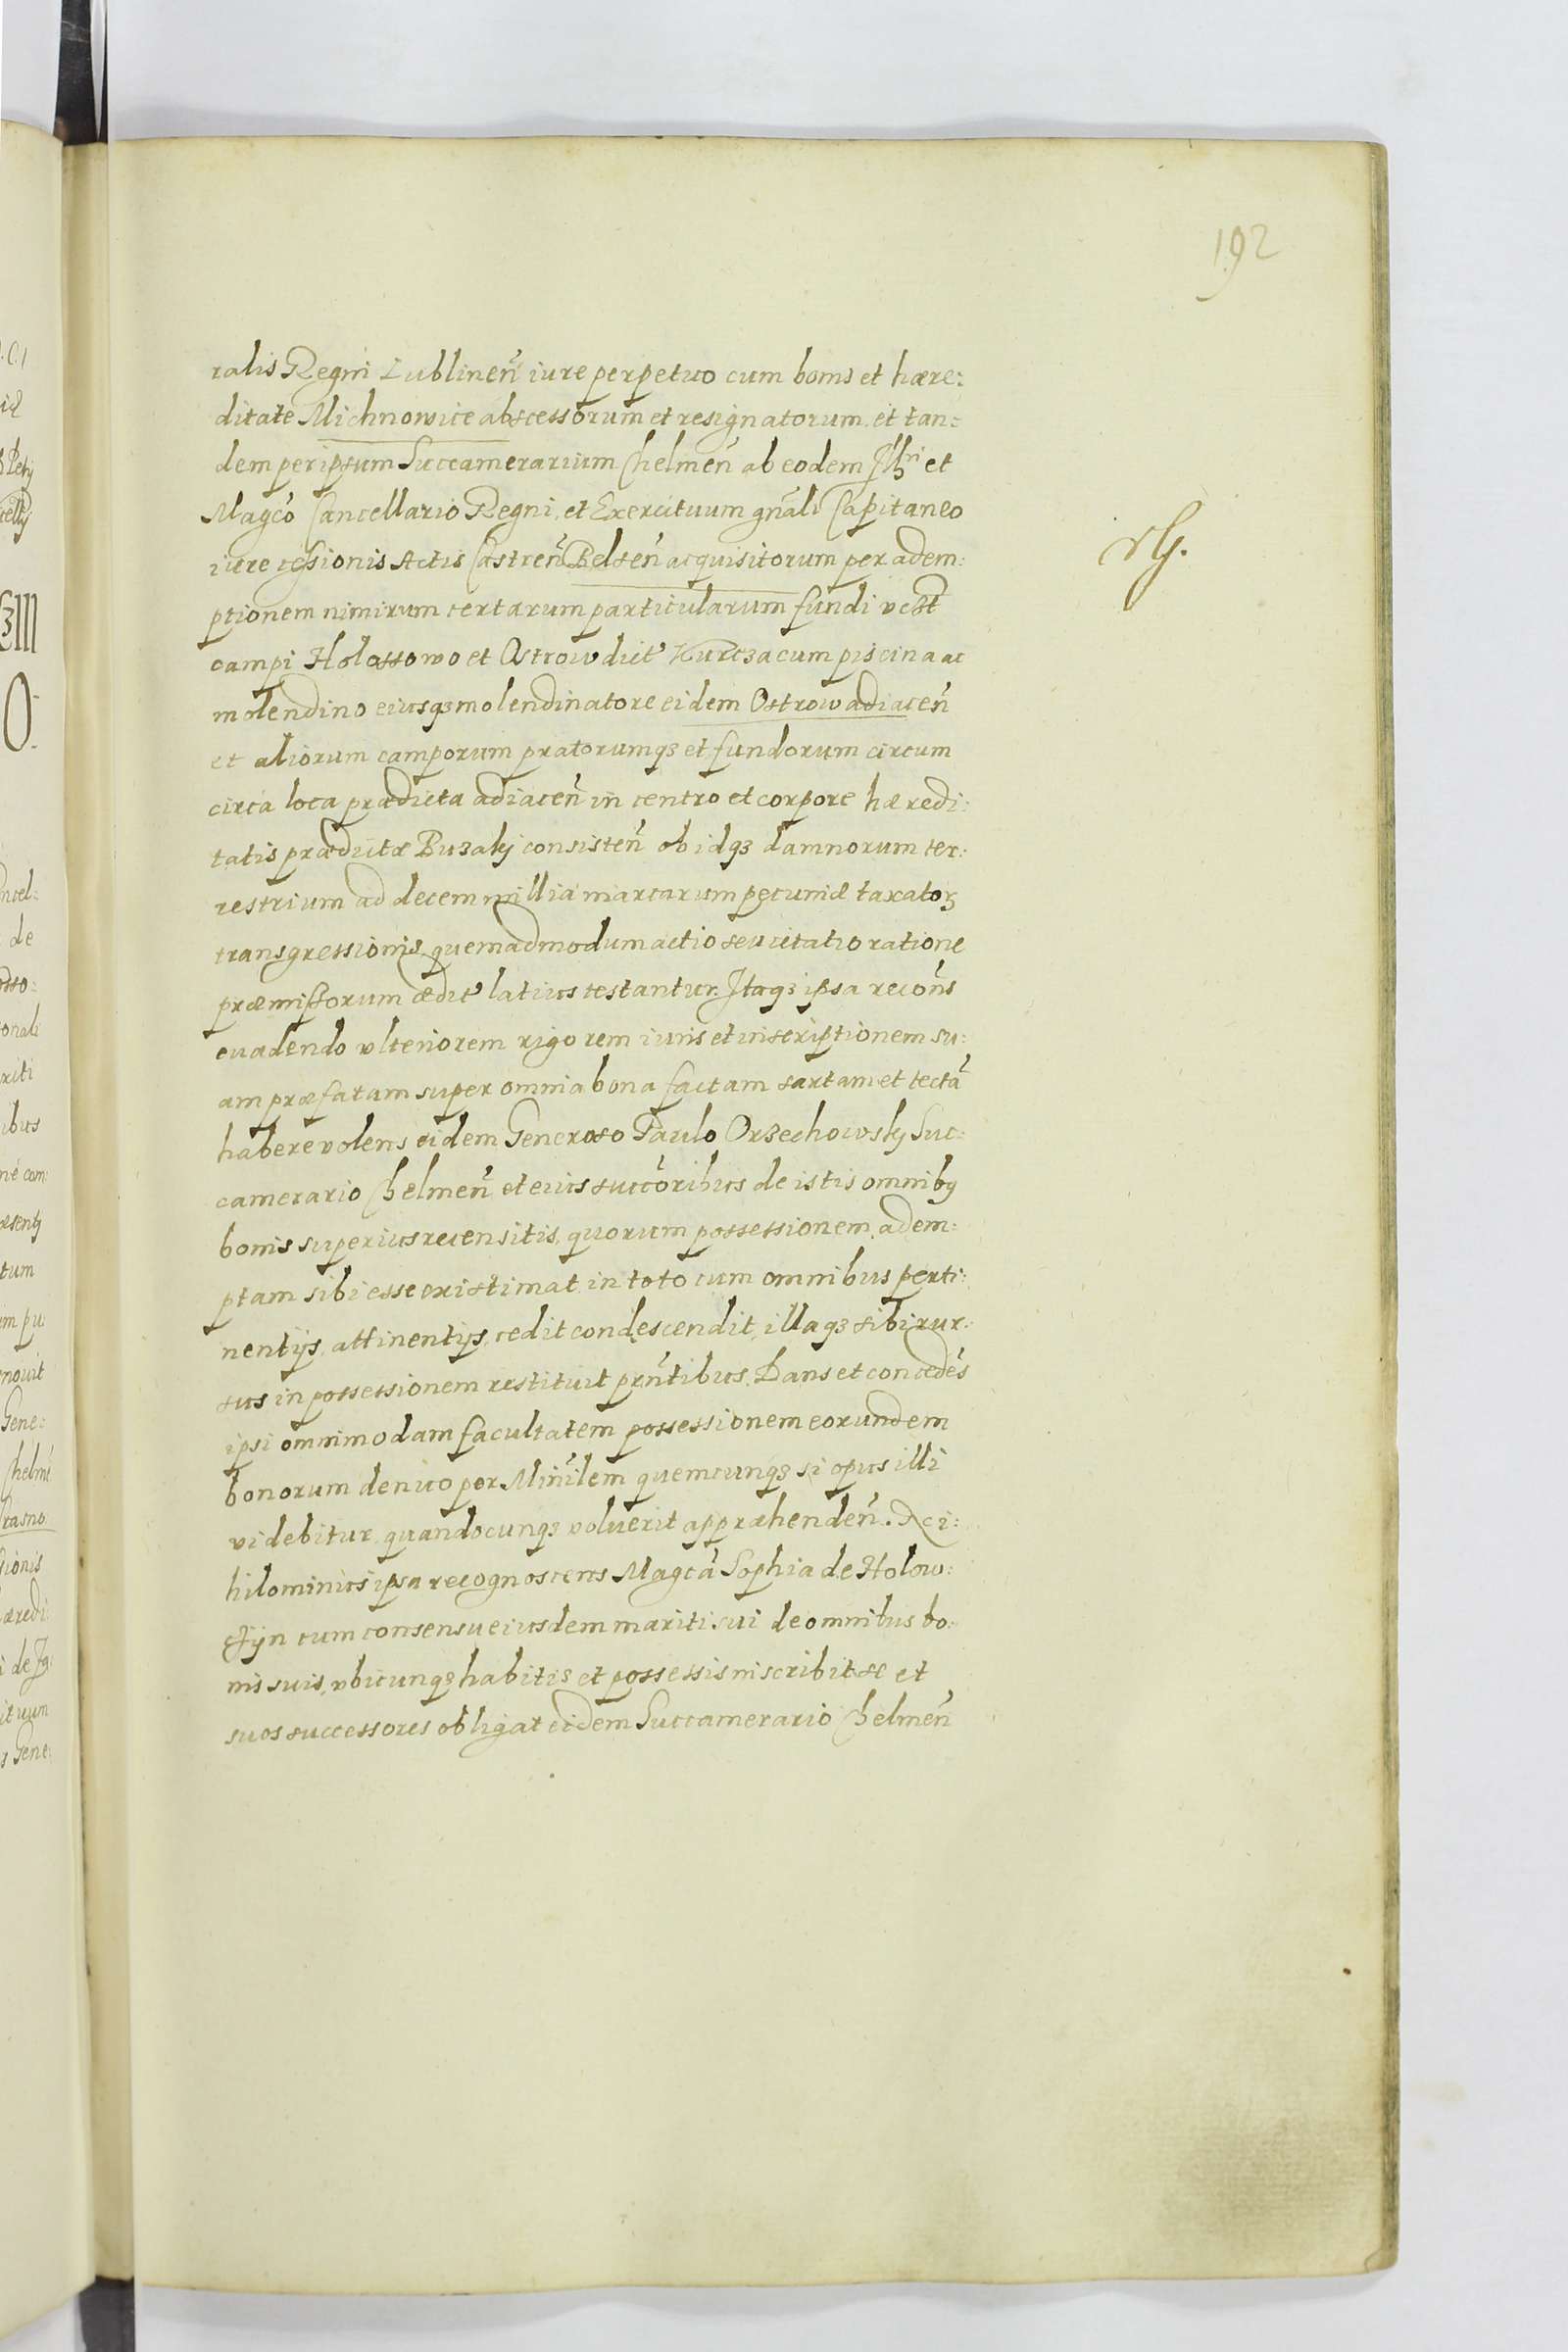 192
ralis Regni Lublineñ iure perpetuo cum bonis et hære:
ditate Michnowice abscessorum et resignatorum, et tan:
dem per ipsum Succamerarium Chelmeñ ab eodem Illri et
Magco Cancellario Regni, et Exercituum gñali Capitaneo
iure cessionis Actis Castreñ Belseñ acquisitorum per adem:
ptionem nimirum certarum particularum fundi
campi Holossowo et Ostrow dict Kurcza cum piscina ac
molendino eiusqz molendinatore eidem Ostrow adiaceñ
et aliorum camporum pratorumqz et fundorum circum
circa loca prædicta adiaceñ in centro et corpore hæredi:
tatis prædictæ Buzaky consisteñ ob idqz damnorum ter:
restrium ad decem millia marcarum pecuniæ taxatoz
transgressionis, quemadmodum actio seu citatio ratione
præmissorum ædit latius testantur. Itaqz ipsa recoñs
euadendo vlteriorem rigorem iuris et inscriptionem su:
am præfatam super omnia bona factam sartam et tectã
habere volens eidem Generoso Paulo Orzechowsky Suc:
camerario Chelmeñ et eius succoribus de istis omnibz
bonis superius recensitis, quorum possessionem adem:
ptam sibi esse existimat in toto cum omnibus perti:
nentijs, attinentijs, cedit condescendit, illaqz sibi rur:
sus in possessionem restituit prñtibus. Dans et concedẽs
ipsi omnimodam facultatem possessionem eorundem
bonorum denuo per Minilem quemcunqz si opus illi
videbitur quandocunqz voluerit appræhendeñ. Ac i:
hilominus ipsa recognoscens Magcã Sophia de Holow:
czijn cum consensu eiusdem mariti sui de omnibus bo:
nis suis, vbicunqz habitis et possessis inscribit se et
suos successores obligat eidem Succamerario Chelmeñ